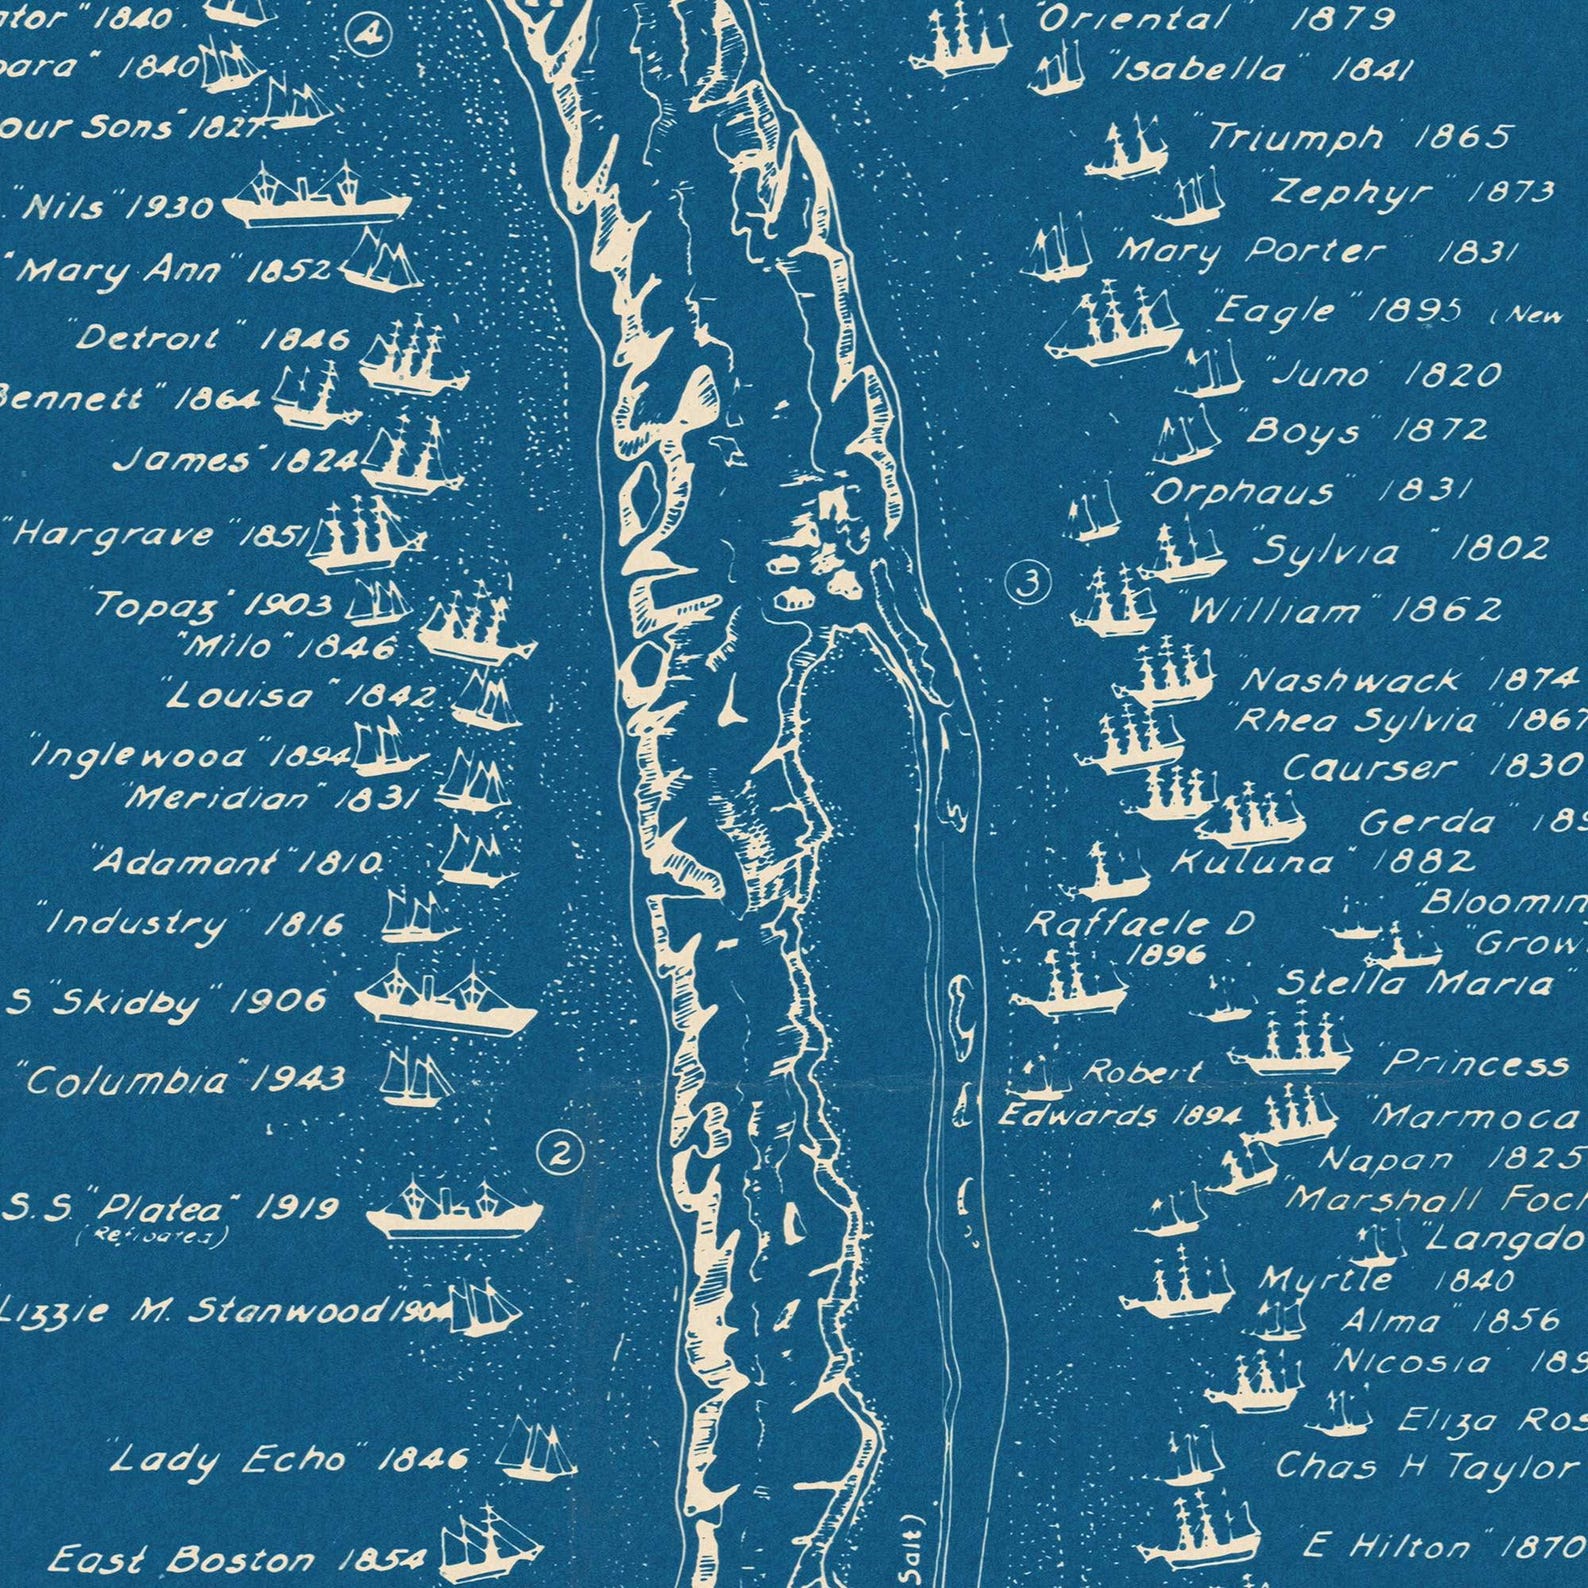 ator" 1840.
bara" 1840
our Sons" 1827.
4
"Nils" 1930
"Mary Ann" 1852
"Detroit" 1846
Bennett" 1864
James" 1824
"Hargrave" 1851
"Topaz" 1903
"Milo" 1846
"Louisa" 1842
"Inglewood" 1894
"Meridian" 1831
"Adamant" 1810.
"Industry" 1816
S "Skidby" 1906
"Columbia" 1943
2
S.S. "Platea" 1919
Lizzie M. Stanwood 1904
"Lady Echo" 1846
East Boston 1854
"Oriental" 1879
"Isabella" 1841
"Triumph" 1865
"Zephyr" 1873
"Mary Porter" 1831
"Eagle" 1895 (New
"Juno" 1820
"Boys" 1872
"Orphaus" 1831
"Sylvia" 1802
3
"William" 1862
"Nashwack" 1874
"Rhea Sylvia" 1867
Caurser" 1830
Gerda" 189
Kuluna" 1882
"Bloomin
Raffaele D
1896
"Grow
Stella Maria"
"Princess
Robert
Edwards 1894
"Marmoca
Napan 1825
"Marshall Foch
"Langdo
Myrtle" 1840
Alma" 1856
"Nicosia" 189
Eliza Ros
Chas H Taylor
"E Hilton" 1870
Salt)